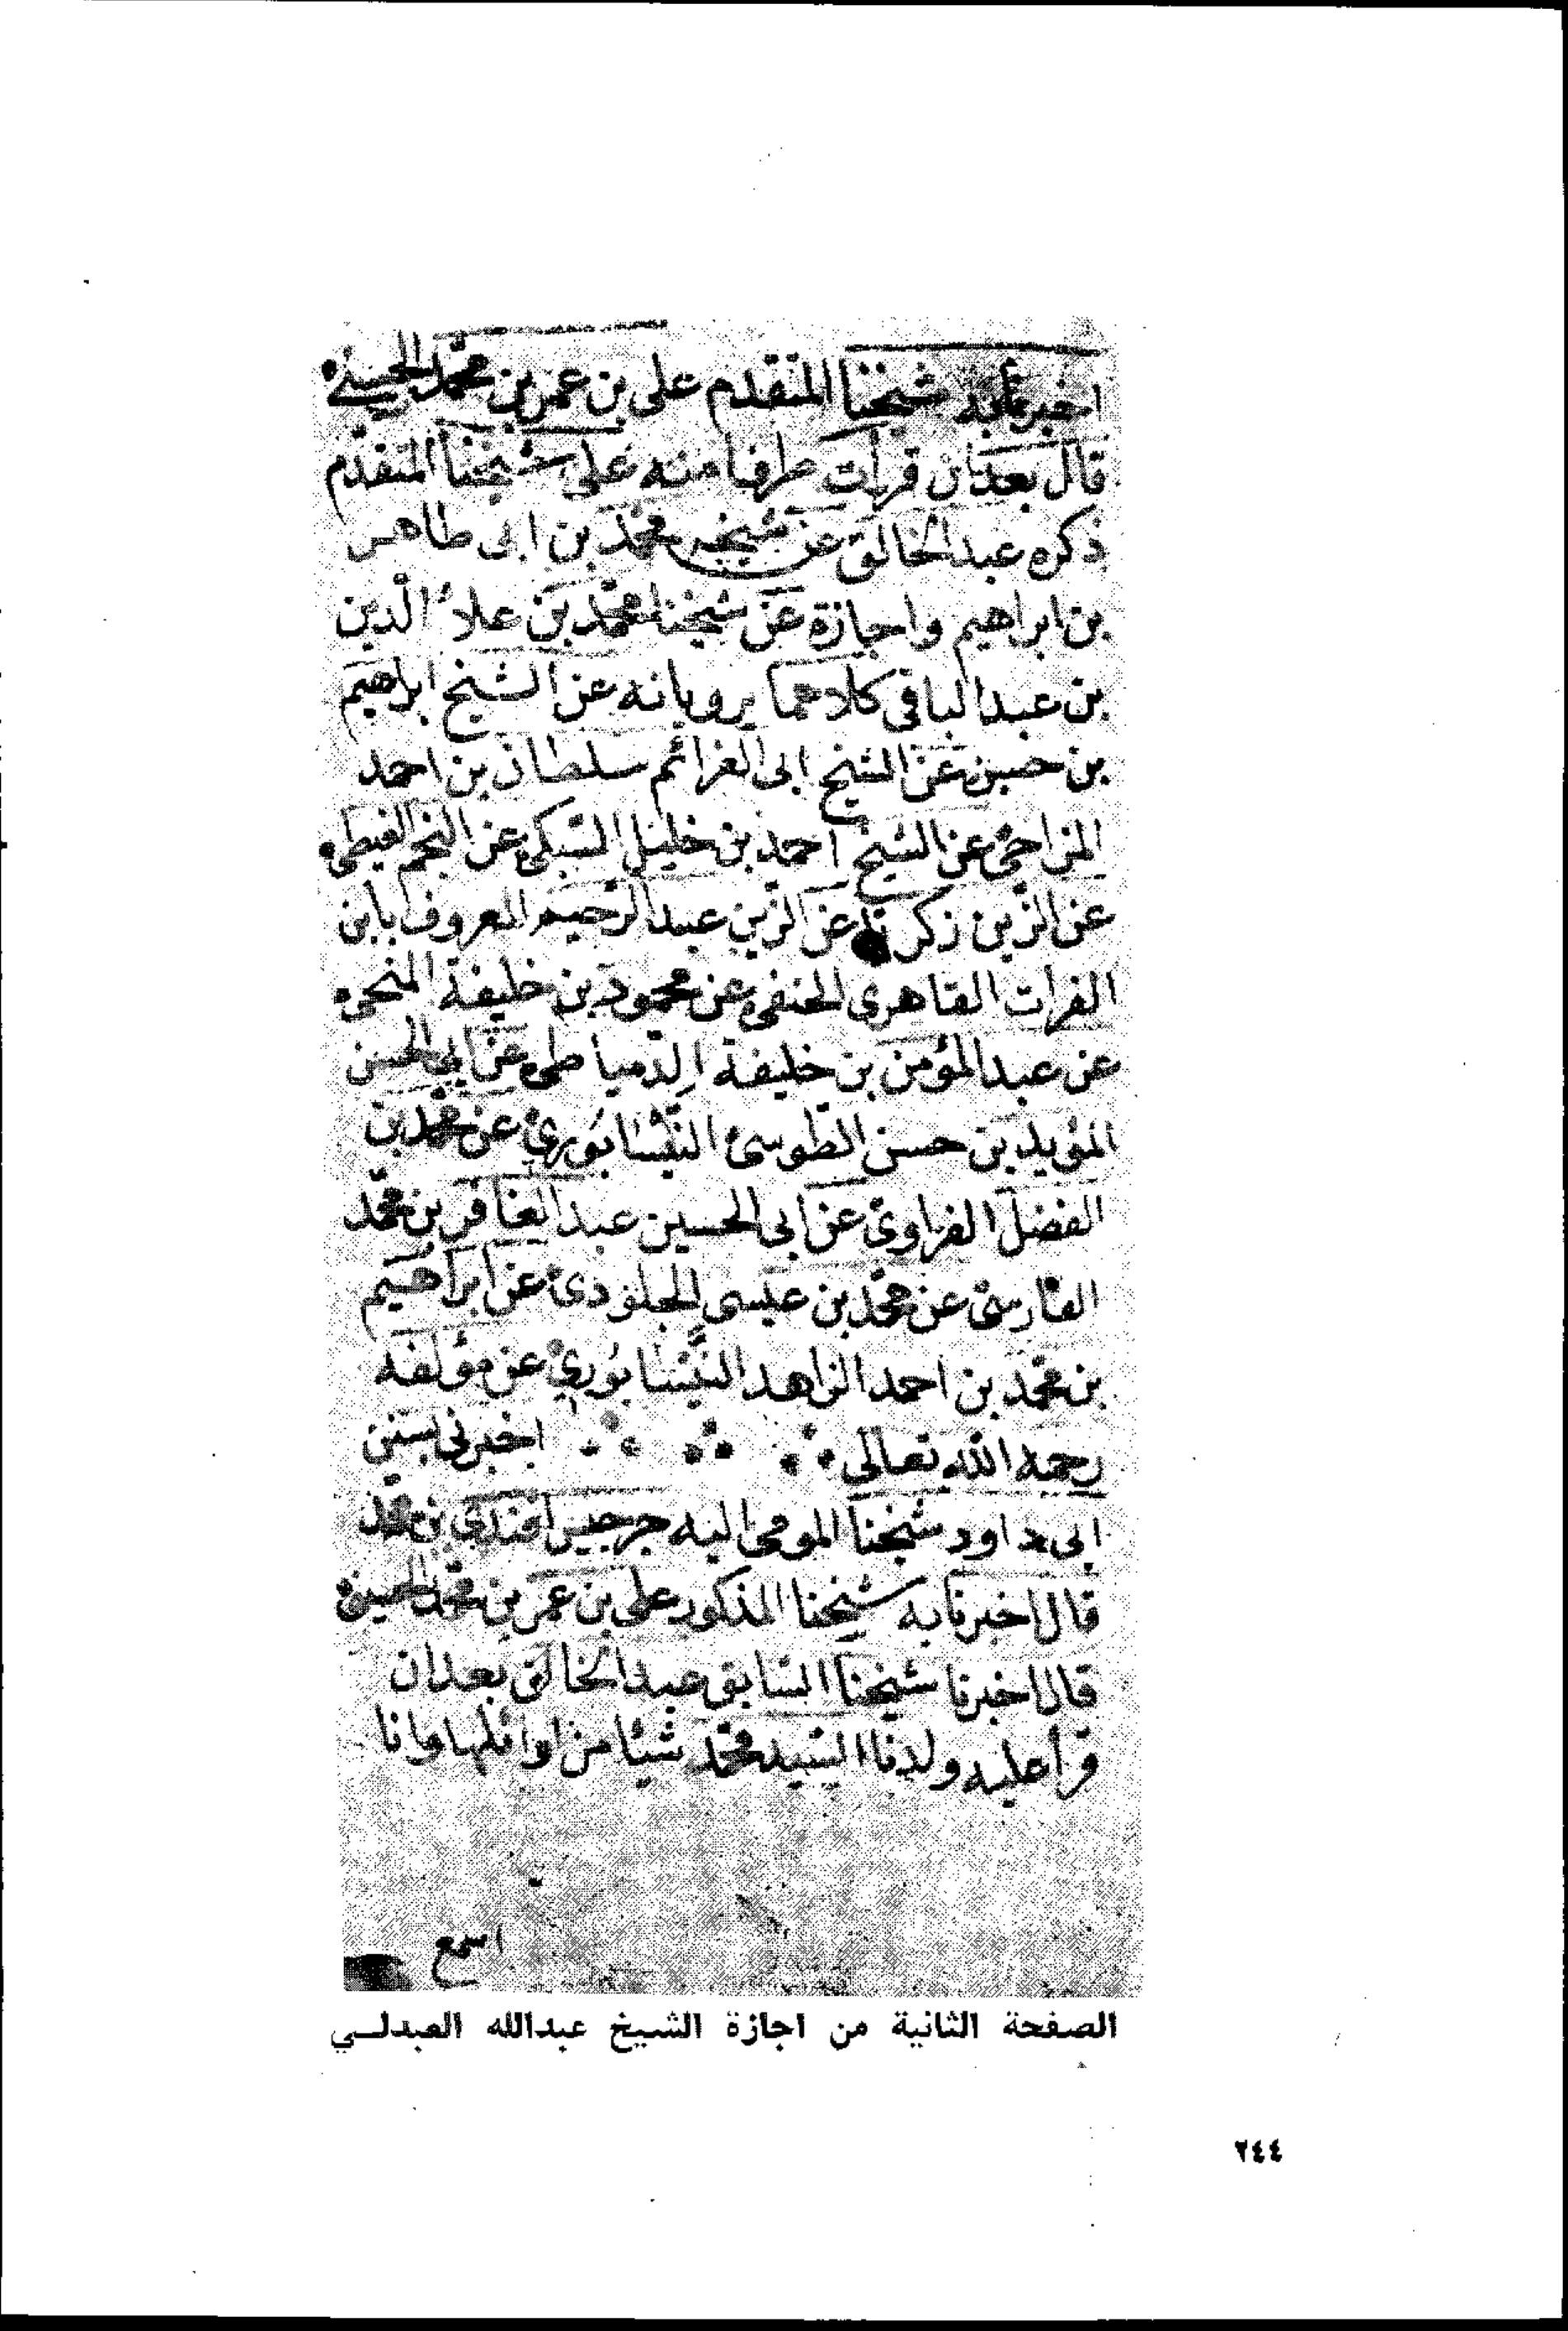 اخبرنا به شيخنا المتقدم على بن عمر بن محمد الحسيني
قال بعد ان قرأت طرفا منه على شيخنا المتقدم
ذكره عبد الخالق عن شيخه محمد بن ابى طاهر
بن ابراهيم واجازة عن شيخنا محمد بن علاء الدين
بن عبد الباقى كلاهما يرويانه عن الشيخ ابراهيم
بن حسين عن الشيخ ابى العزائم سلطان بن احمد
المزاحى عن الشيخ احمد بن خليل السبكى عن النجم الغيطى
عن الزين زكريا عن الزين عبد الرحيم المعروف بابن
الفرات القاهرى الحنفى عن محمود بن خليفة المنجى
عن عبد المؤمن بن خليفة الدمياطى عن ابى الحسن
المؤيد بن حسن الطوسى النيسابورى عن محمد بن
الفضل الفراوى عن ابى الحسين عبد الغافر بن محمد
الفارسى عن محمد بن عيسى الجلودى عن ابراهيم
بن محمد بن احمد الزاهد النيسابورى عن مؤلفه
رحمه الله تعالى اخبرنى بسنن
ابى داود شيخنا المومى اليه جرجيس افندى بن محمد
قال اخبرنا به شيخنا المذكور على بن عمر بن محمد الحسينى
قال اخبرنا شيخنا السابق عبد الخالق بعد ان
قرأ عليه ولدنا السيد محمد شيئا من اوائلها وانا
اسمع
الصفحة الثانية من اجازة الشيخ عبدالله العبدلــي
٢٤٤